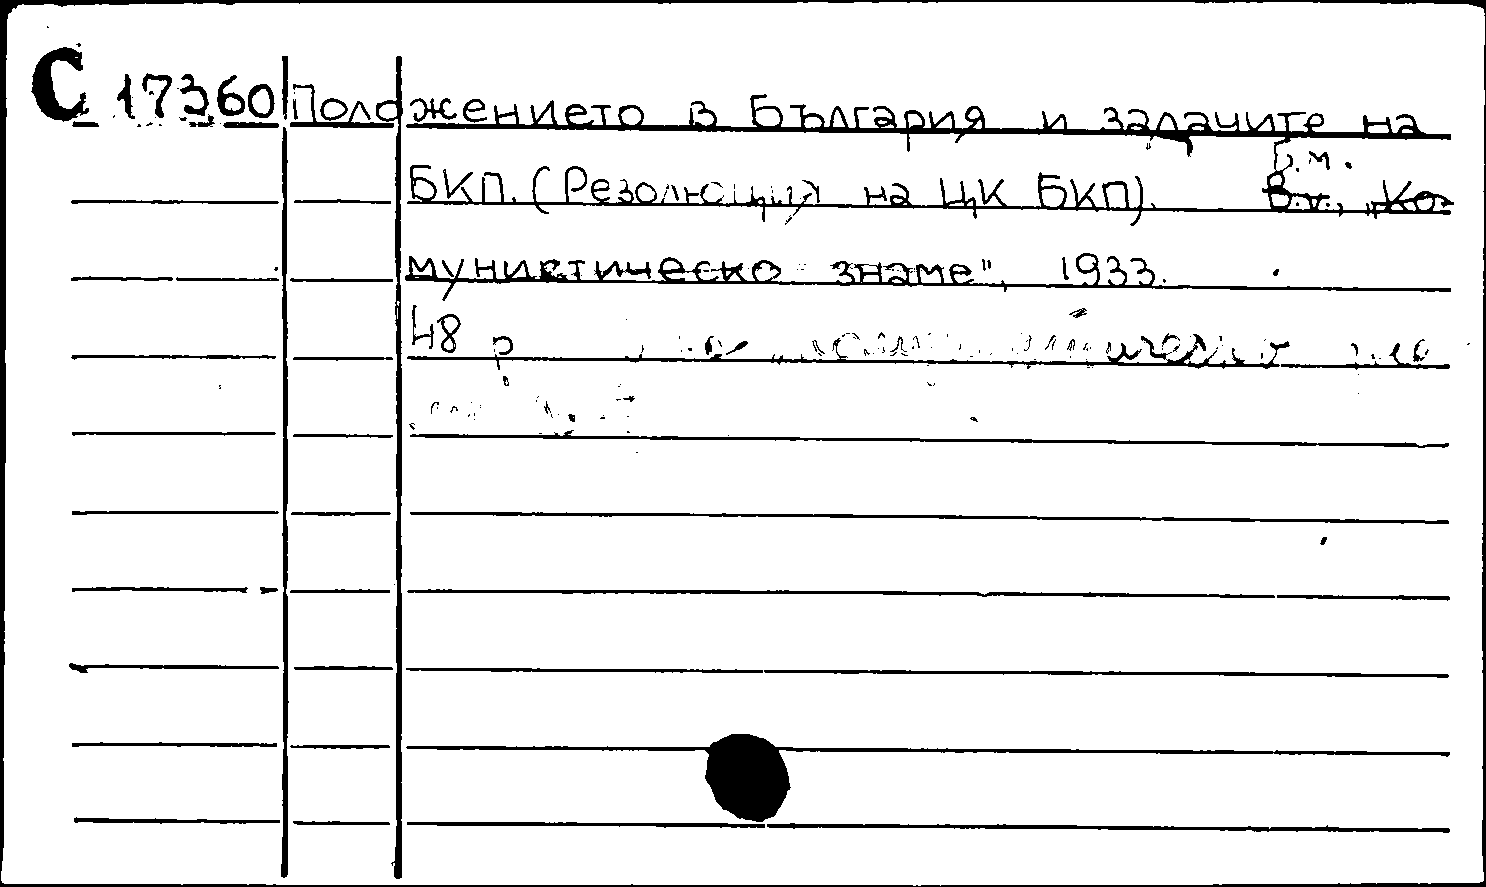 С 17360 Положението в България и задачите на
Б.м.
БКП. (Резолюция на ЦК БКП). В.и., „Ко-
мунистическо знаме", 1933.
48 р